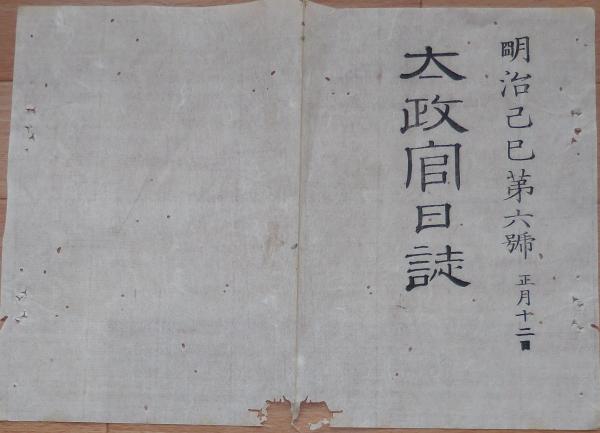 明治己巳第六號 正月十二日
太政官日誌